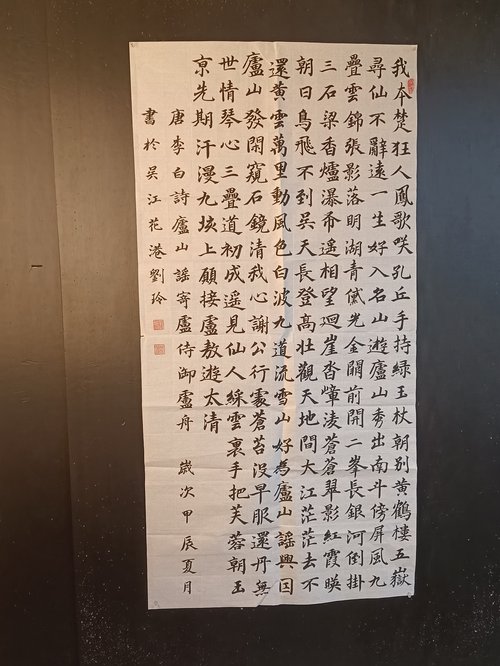 我本楚狂人鳳歌咲孔丘手持綠玉杖朝別黃鶴樓五嶽
尋仙不辭遠一生好入名山遊廬山秀出南斗傍屏風九
疊雲錦張影落明湖青黛光金闕前開二峯長銀河倒掛
三石梁香爐瀑布遙相望迴崖沓嶂凌蒼蒼翠影紅霞暎
朝日鳥飛不到吳天長登高壯觀天地間大江茫茫去不
還黃雲萬里動風色白波九道流雪山好為廬山謠興因
廬山發閑窺石鏡清我心謝公行處蒼苔沒早服還丹無
世情琴心三疊道初成遙見仙人綵雲裏手把芙蓉朝玉
京先期汗漫九垓上願接盧敖遊太清
唐李白詩廬山謠寄盧侍御盧舟 歲次甲辰夏月
書於吳江花港劉玲